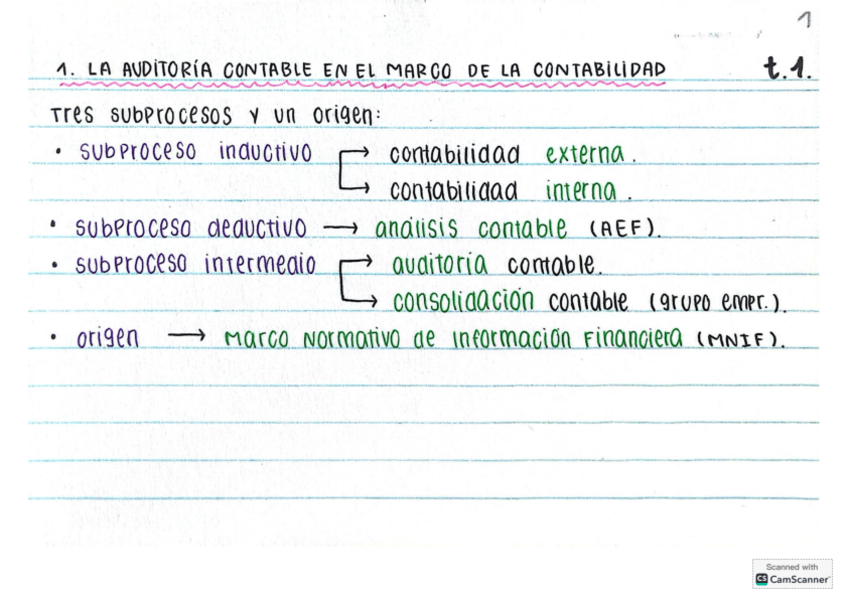 1
1. LA AUDITORÍA CONTABLE EN EL MARCO DE LA CONTABILIDAD t.1.
Tres subprocesos y un origen:
• subproceso inductivo → contabilidad externa.
→ contabilidad interna.
• subproceso deductivo → análisis contable (AEF).
• subproceso intermedio → auditoría contable.
→ consolidación contable (grupo empr.).
• origen → Marco Normativo de Información Financiera (MNIF).
Scanned with
CS CamScanner